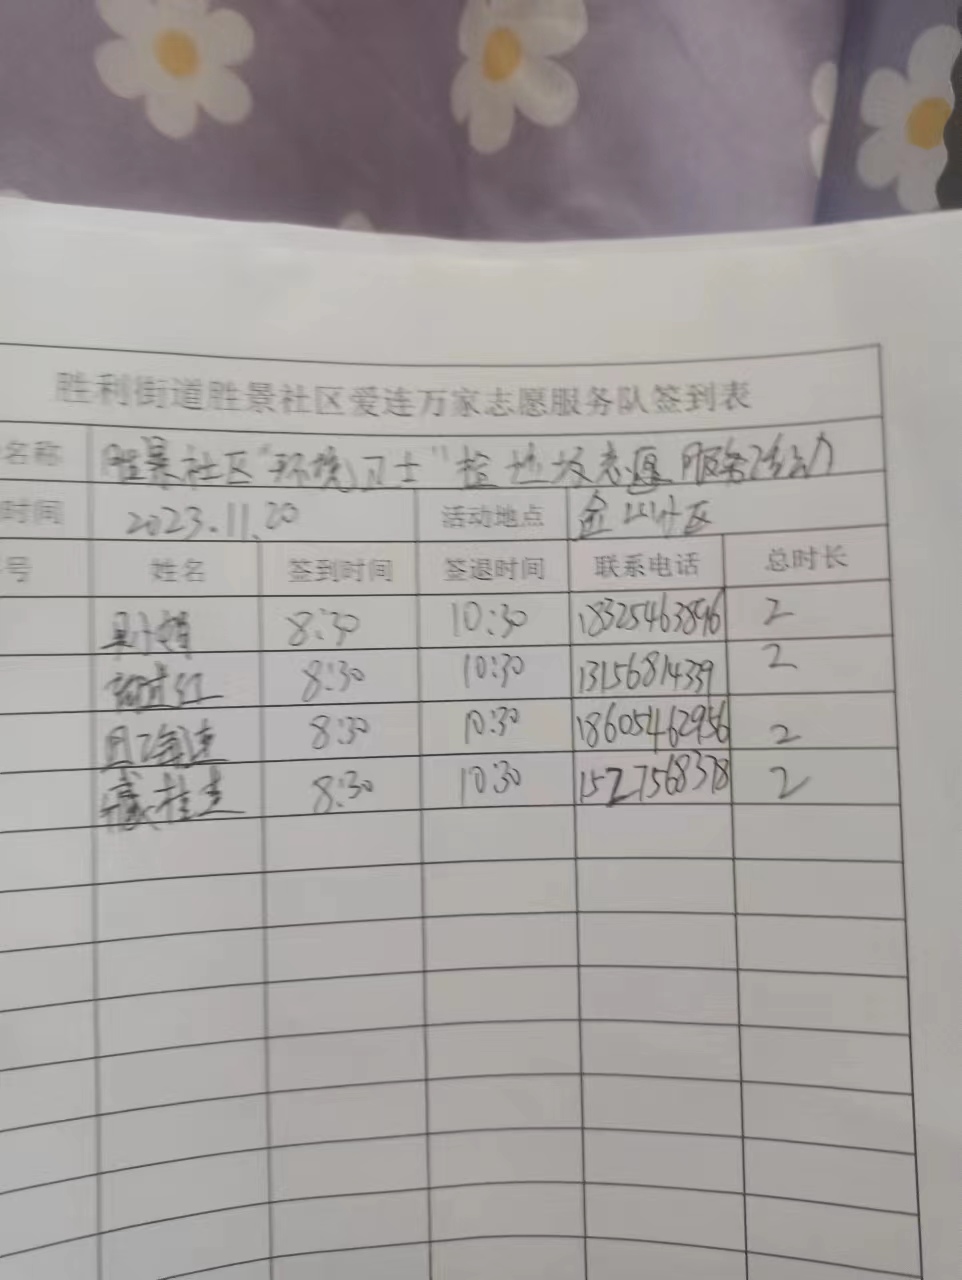 胜利街道胜景社区爱连万家志愿服务队签到表
名称 胜景社区"环境卫士"捡垃圾志愿服务活动
时间 2023.11.20 活动地点 金山社区
号 姓名 签到时间 签退时间 联系电话 总时长
8:30 10:30 18325463896 2
8:30 10:30 13156814339 2
8:30 10:30 18605462956 2
桂 8:30 10:30 1527568378 2